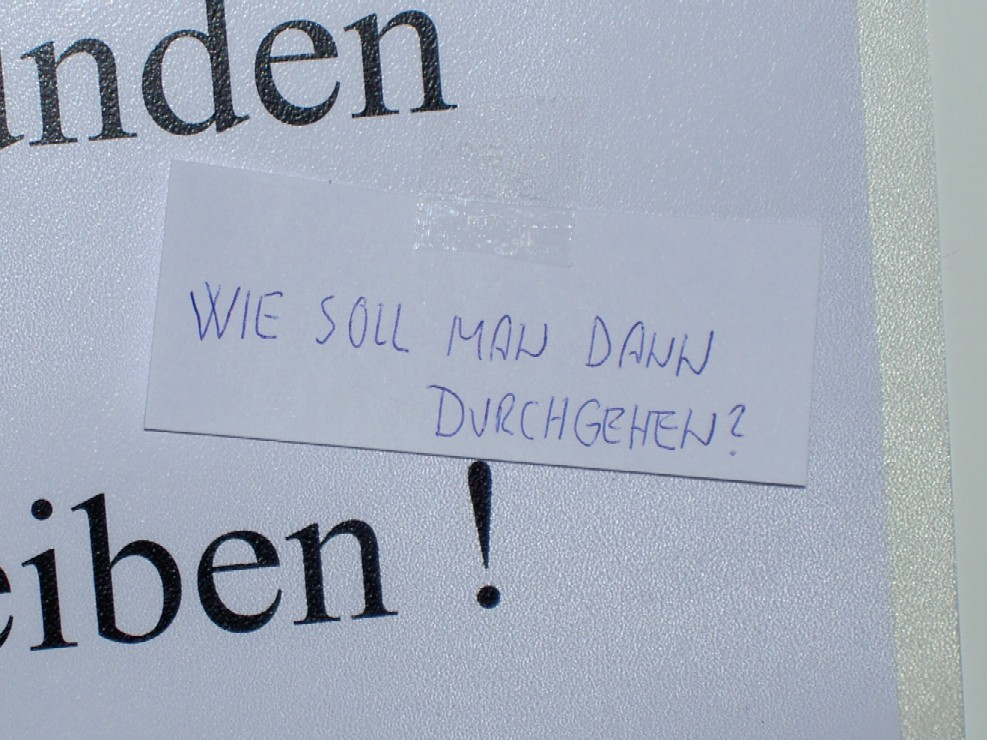 unden
WIE SOLL MAN DANN
DURCHGEHEN?
eiben !